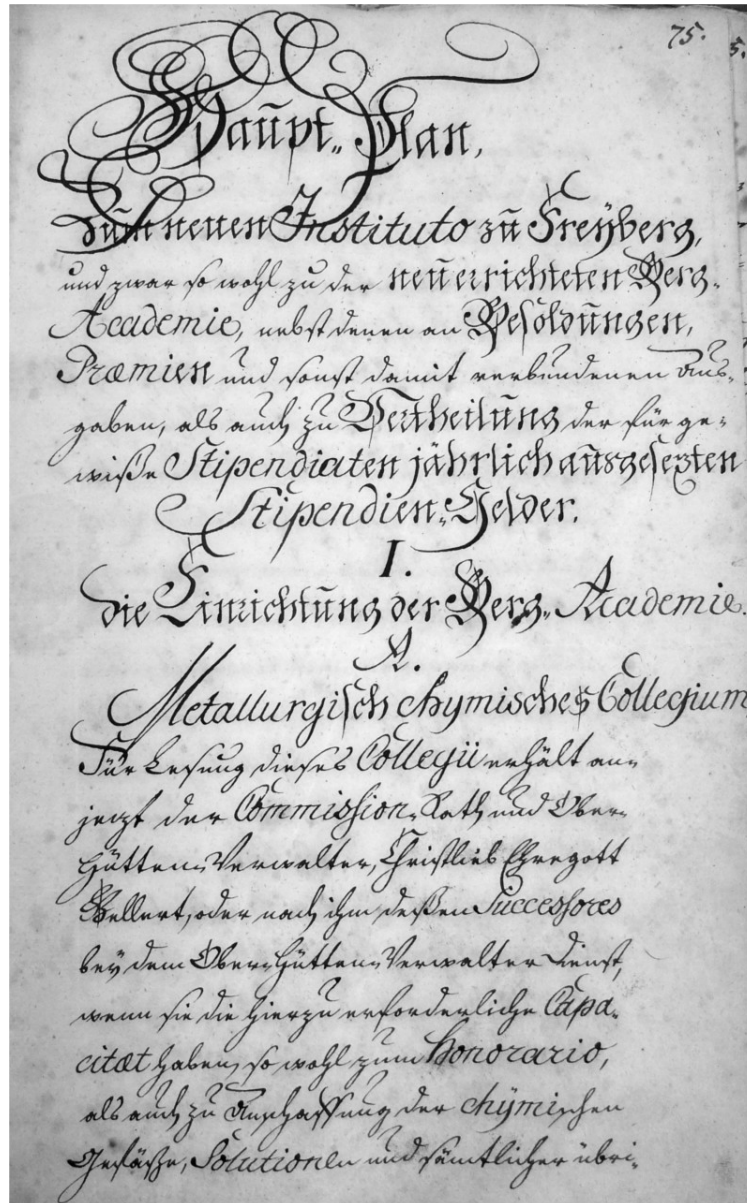 75.
Haupt-Plan,
Zum neuen Instituto zu Freyberg,
und zwar so wohl zu der neuerrichteten Berg-
Academie, nebst denen an Besoldungen,
Præmien und sonst damit verbundenen Aus-
gaben, als auch zu Vertheilung der für ge-
wiße Stipendiaten jährlich ausgesezten
Stipendien-Gelder.
I.
die Einrichtung der Berg-Academie.
A.
Metallurgisch chymisches Collegium
Für Lesung dieses Collegii erhält an-
jezt der Commission-Rath und Ober-
Hütten-Verwalter, Christlieb Ehregott
Gellert, oder nach ihm deßen Successores
bey dem Ober-Hütten-Verwalter Dienst,
wenn sie die hierzu erforderliche Capa-
citæt haben, so wohl zum Honorario,
als auch zu Anschaffung der chymischen
Gefäße, Solutionen und sämtlicher übri-